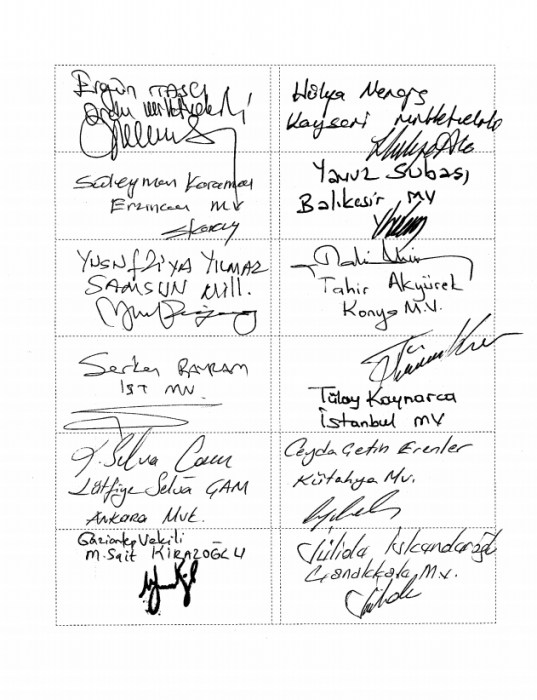 Ergün TAŞCI
Ordu milletvekili
Hülya Nergis
Kayseri milletvekili
Süleyman Karaman
Erzincan MV
Yavuz SUBAŞI
Balıkesir MV
YUSUF ZİYA YILMAZ
SAMSUN Mill.
Tahir Akyürek
Konya M.V.
Serkan BAYRAM
İST MV.
Tülay Kaynarca
İstanbul MV
K. Selva Çam
Lütfiye Selva ÇAM
Ankara Mvk.
Ceyda Çetin Erenler
Kütahya Mv.
Gaziantep Vekili
M. Sait KİRAZOĞLU
Jülide İskenderoğlu
Çanakkale M.V.